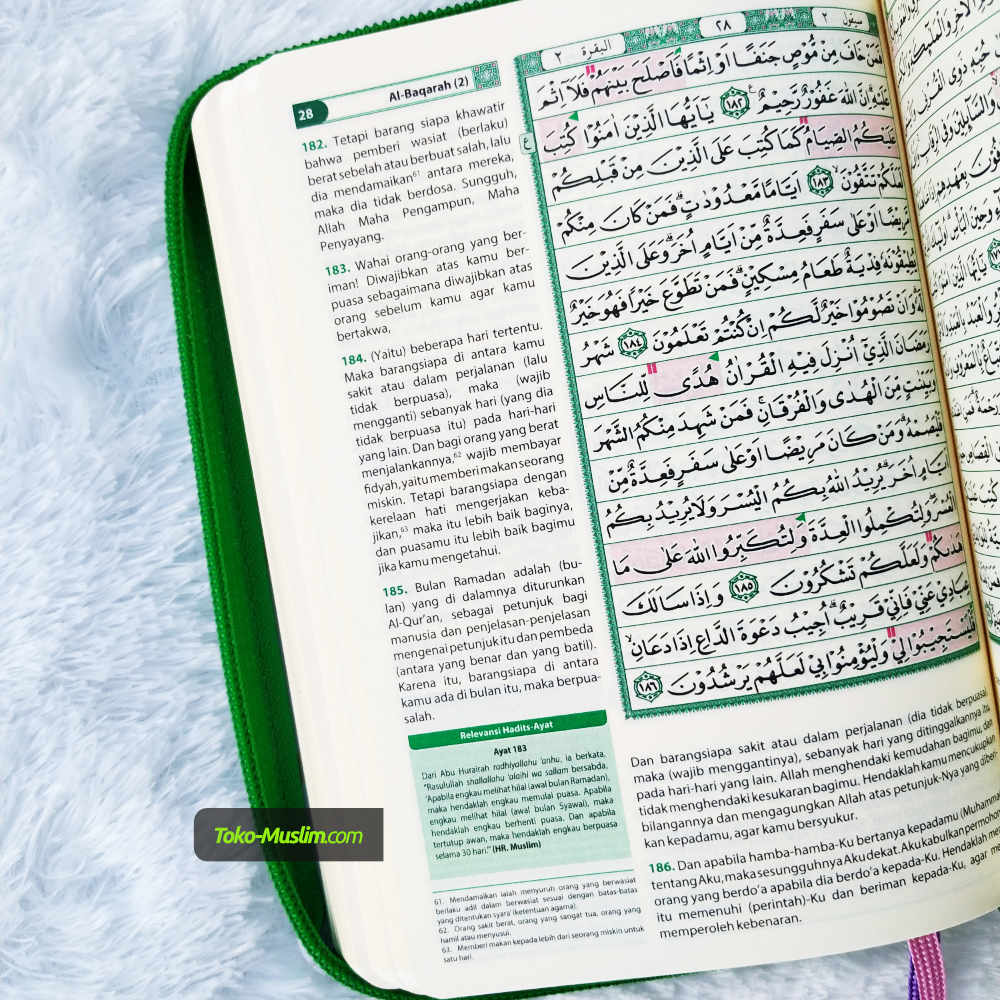 28
Al-Baqarah (2)
182. Tetapi barang siapa khawatir
bahwa pemberi wasiat (berlaku)
berat sebelah atau berbuat salah, lalu
dia mendamaikan⁶¹ antara mereka,
maka dia tidak berdosa. Sungguh,
Allah Maha Pengampun, Maha
Penyayang.
183. Wahai orang-orang yang ber-
iman! Diwajibkan atas kamu ber-
puasa sebagaimana diwajibkan atas
orang sebelum kamu agar kamu
bertakwa,
184. (Yaitu) beberapa hari tertentu.
Maka barangsiapa di antara kamu
sakit atau dalam perjalanan (lalu
tidak berpuasa), maka (wajib
mengganti) sebanyak hari (yang dia
tidak berpuasa itu) pada hari-hari
yang lain. Dan bagi orang yang berat
menjalankannya,⁶² wajib membayar
fidyah, yaitu memberi makan seorang
miskin. Tetapi barangsiapa dengan
kerelaan hati mengerjakan keba-
jikan,⁶³ maka itu lebih baik baginya,
dan puasamu itu lebih baik bagimu
jika kamu mengetahui.
185. Bulan Ramadan adalah (bu-
lan) yang di dalamnya diturunkan
Al-Qur'an, sebagai petunjuk bagi
manusia dan penjelasan-penjelasan
mengenai petunjuk itu dan pembeda
(antara yang benar dan yang batil).
Karena itu, barangsiapa di antara
kamu ada di bulan itu, maka berpua-
salah.
Relevansi Hadits-Ayat
Ayat 183
Dari Abu Hurairah radhiyallahu 'anhu, ia berkata,
"Rasulullah shallallahu 'alaihi wa sallam bersabda,
'Apabila engkau melihat hilal (awal bulan Ramadan),
maka hendaklah engkau memulai puasa. Apabila
engkau melihat hilal (awal bulan Syawal), maka
hendaklah engkau berhenti puasa. Dan apabila
tertutup awan, maka hendaklah engkau berpuasa
selama 30 hari.'" (HR. Muslim)
61. Mendamaikan ialah menyuruh orang yang berwasiat
berlaku adil dalam berwasiat sesuai dengan batas-batas
yang ditentukan syara' (ketentuan agama).
62. Orang sakit berat, orang yang sangat tua, orang yang
hamil atau menyusui.
63. Memberi makan kepada lebih dari seorang miskin untuk
satu hari.
سيقول ٢
٢٨
البقرة ٢
فَمَنْ خَافَ مِنْ مُّوْصٍ جَنَفًا اَوْ اِثْمًا فَاَصْلَحَ بَيْنَهُمْ فَلَآ اِثْمَ
عَلَيْهِ ۗ اِنَّ اللّٰهَ غَفُوْرٌ رَّحِيْمٌ ١٨٢ يٰٓاَيُّهَا الَّذِيْنَ اٰمَنُوْا كُتِبَ
ع
عَلَيْكُمُ الصِّيَامُ كَمَا كُتِبَ عَلَى الَّذِيْنَ مِنْ قَبْلِكُمْ
لَعَلَّكُمْ تَتَّقُوْنَ ١٨٣ اَيَّامًا مَّعْدُوْدٰتٍ ۗ فَمَنْ كَانَ مِنْكُمْ
مَّرِيْضًا اَوْ عَلٰى سَفَرٍ فَعِدَّةٌ مِّنْ اَيَّامٍ اُخَرَ ۗ وَعَلَى الَّذِيْنَ
يُطِيْقُوْنَهٗ فِدْيَةٌ طَعَامُ مِسْكِيْنٍ ۗ فَمَنْ تَطَوَّعَ خَيْرًا فَهُوَ خَيْرٌ
لَّهٗ ۗ وَاَنْ تَصُوْمُوْا خَيْرٌ لَّكُمْ اِنْ كُنْتُمْ تَعْلَمُوْنَ ١٨٤ شَهْرُ
رَمَضَانَ الَّذِيْٓ اُنْزِلَ فِيْهِ الْقُرْاٰنُ هُدًى لِّلنَّاسِ
وَبَيِّنٰتٍ مِّنَ الْهُدٰى وَالْفُرْقَانِ ۚ فَمَنْ شَهِدَ مِنْكُمُ الشَّهْرَ
فَلْيَصُمْهُ ۗ وَمَنْ كَانَ مَرِيْضًا اَوْ عَلٰى سَفَرٍ فَعِدَّةٌ مِّنْ
اَيَّامٍ اُخَرَ ۗ يُرِيْدُ اللّٰهُ بِكُمُ الْيُسْرَ وَلَا يُرِيْدُ بِكُمُ
الْعُسْرَ ۖ وَلِتُكْمِلُوا الْعِدَّةَ وَلِتُكَبِّرُوا اللّٰهَ عَلٰى مَا
هَدٰىكُمْ وَلَعَلَّكُمْ تَشْكُرُوْنَ ١٨٥ وَاِذَا سَاَلَكَ
عِبَادِيْ عَنِّيْ فَاِنِّيْ قَرِيْبٌ ۗ اُجِيْبُ دَعْوَةَ الدَّاعِ اِذَا دَعَانِ ۙ
فَلْيَسْتَجِيْبُوْا لِيْ وَلْيُؤْمِنُوْا بِيْ لَعَلَّهُمْ يَرْشُدُوْنَ ١٨٦
Dan barangsiapa sakit atau dalam perjalanan (dia tidak berpuasa),
maka (wajib menggantinya), sebanyak hari yang ditinggalkannya itu,
pada hari-hari yang lain. Allah menghendaki kemudahan bagimu, dan
tidak menghendaki kesukaran bagimu. Hendaklah kamu mencukupkan
bilangannya dan mengagungkan Allah atas petunjuk-Nya yang diberi-
kan kepadamu, agar kamu bersyukur.
186. Dan apabila hamba-hamba-Ku bertanya kepadamu (Muhammad)
tentang Aku, maka sesungguhnya Aku dekat. Aku kabulkan permohonan
orang yang berdo'a apabila dia berdo'a kepada-Ku. Hendaklah
itu memenuhi (perintah)-Ku dan beriman kepada-Ku, agar
memperoleh kebenaran.
Toko-Muslim.com